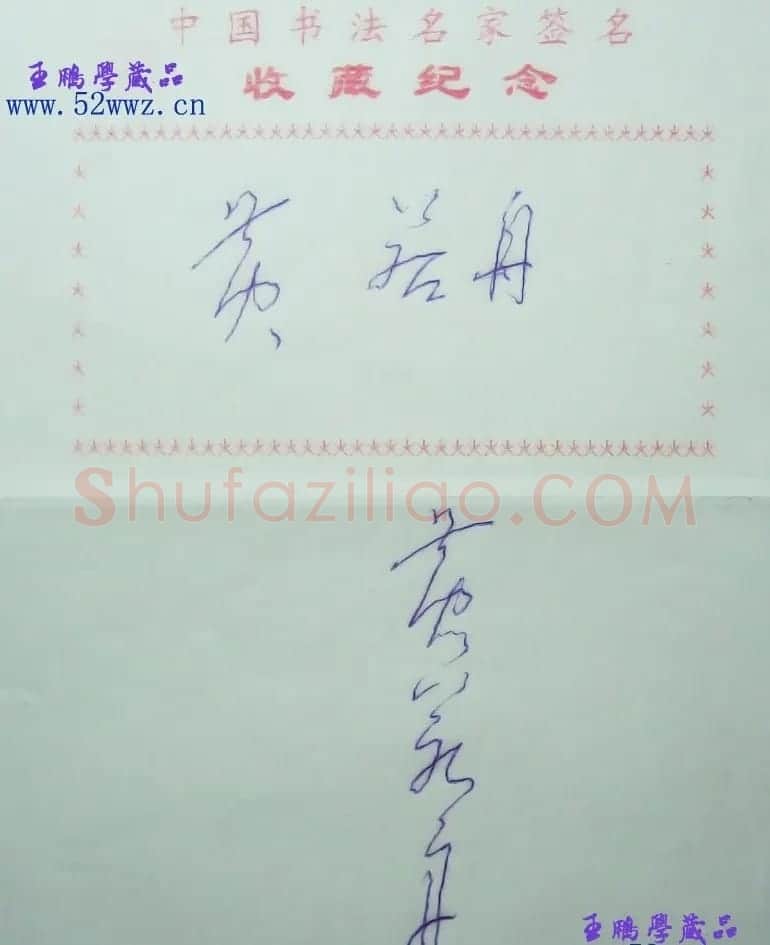 中国书法名家签名
王鹏學蔵品
收藏纪念
www.52wwz.cn
黄若舟
Shufaziliao.COM
黄若舟
王鹏學蔵品